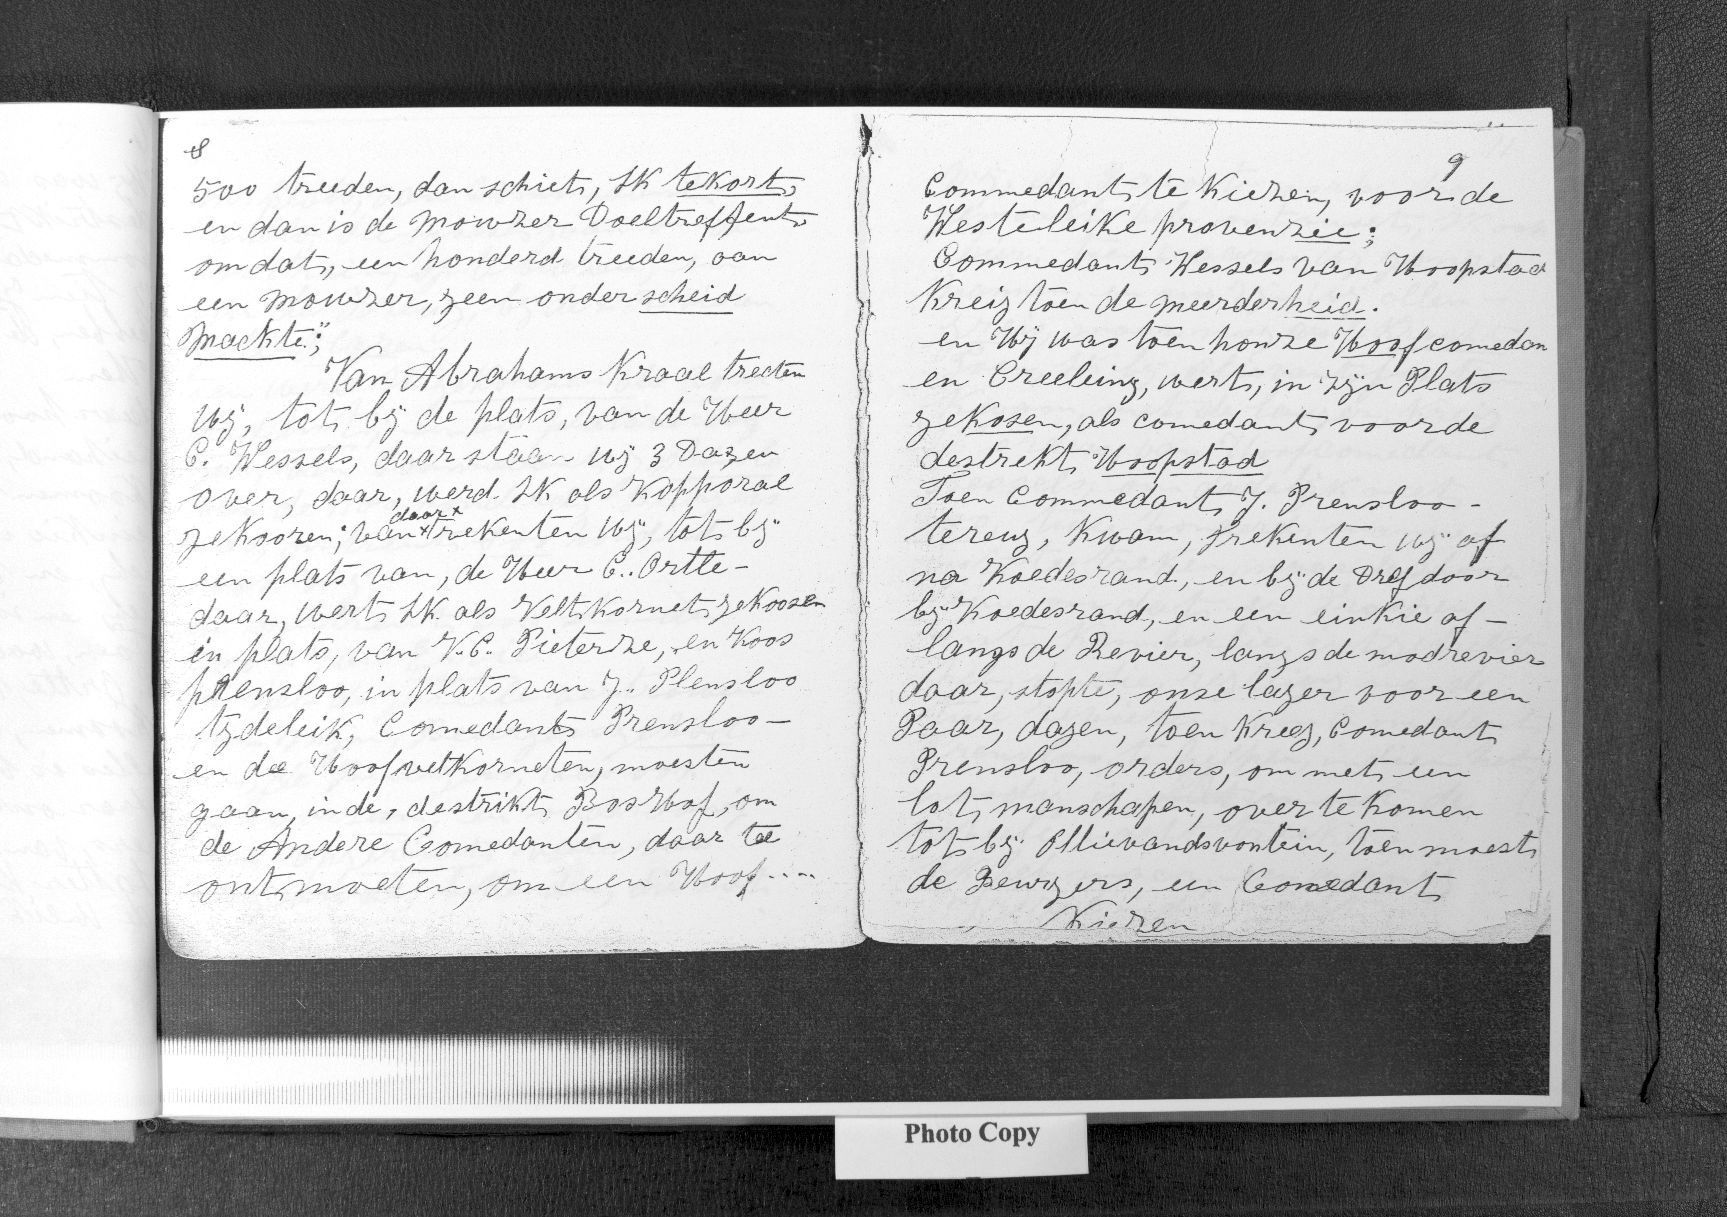 8
500 treeden, dan schiet, Ik tekort,
en dan is de mowzer Doeltreffent,
omdat, een honderd treeden, aan
een mowzer, geen onderscheid
mackte.";
Van Abrahams Kraal trecten
wij, tot bij de plats, van de Heer
C. Wessels, daar stáán wij 3 Dagen
over, daar, werd Ik als Kopporal
gekoozen; van daar trekenten wij, tot bij
een plats van, de Heer C. Ortte-
daar, wert Ik als Veltkornet gekoosen
in plats, van V.C. Pieterze, en Koos
prensloo, in plats van J. Plensloo
tydeleik, Comedant Prensloo-
en dee Hoofvetkorneten, moesten
gaan, in de, destrikt, BosHof, om
de Andere Comedanten, daar tee
ontmoeten, om een Hoof....
9
Commedant te Kiezen, voor de
Westeleike provenzie;
Commedant Wessels van Hoopstad
Kreig toen de meerderheid.
en Hij was toen honze Hoofcomedan
en Creeleing, wert, in zijn Plats
gekosen, als comedant voorde
destrekt, Hoopstad
Toen Commedant J. Prensloo-
tereug, Kwam, trekenten wij af
na Koedesrand, en bij de Dref door
bij Koedesrand, en een einkie af-
langs de Revier, langs de modrevier
daar, stopte, onse lager voor een
Paar, dagen, toen Kreeg, Comedant
Prensloo, orders, om met een
lot, manschapen, over te Komen
tot bij Ollievandsvontein, toen moest
de Beurgers, een Comedant
Kiezen
Photo Copy